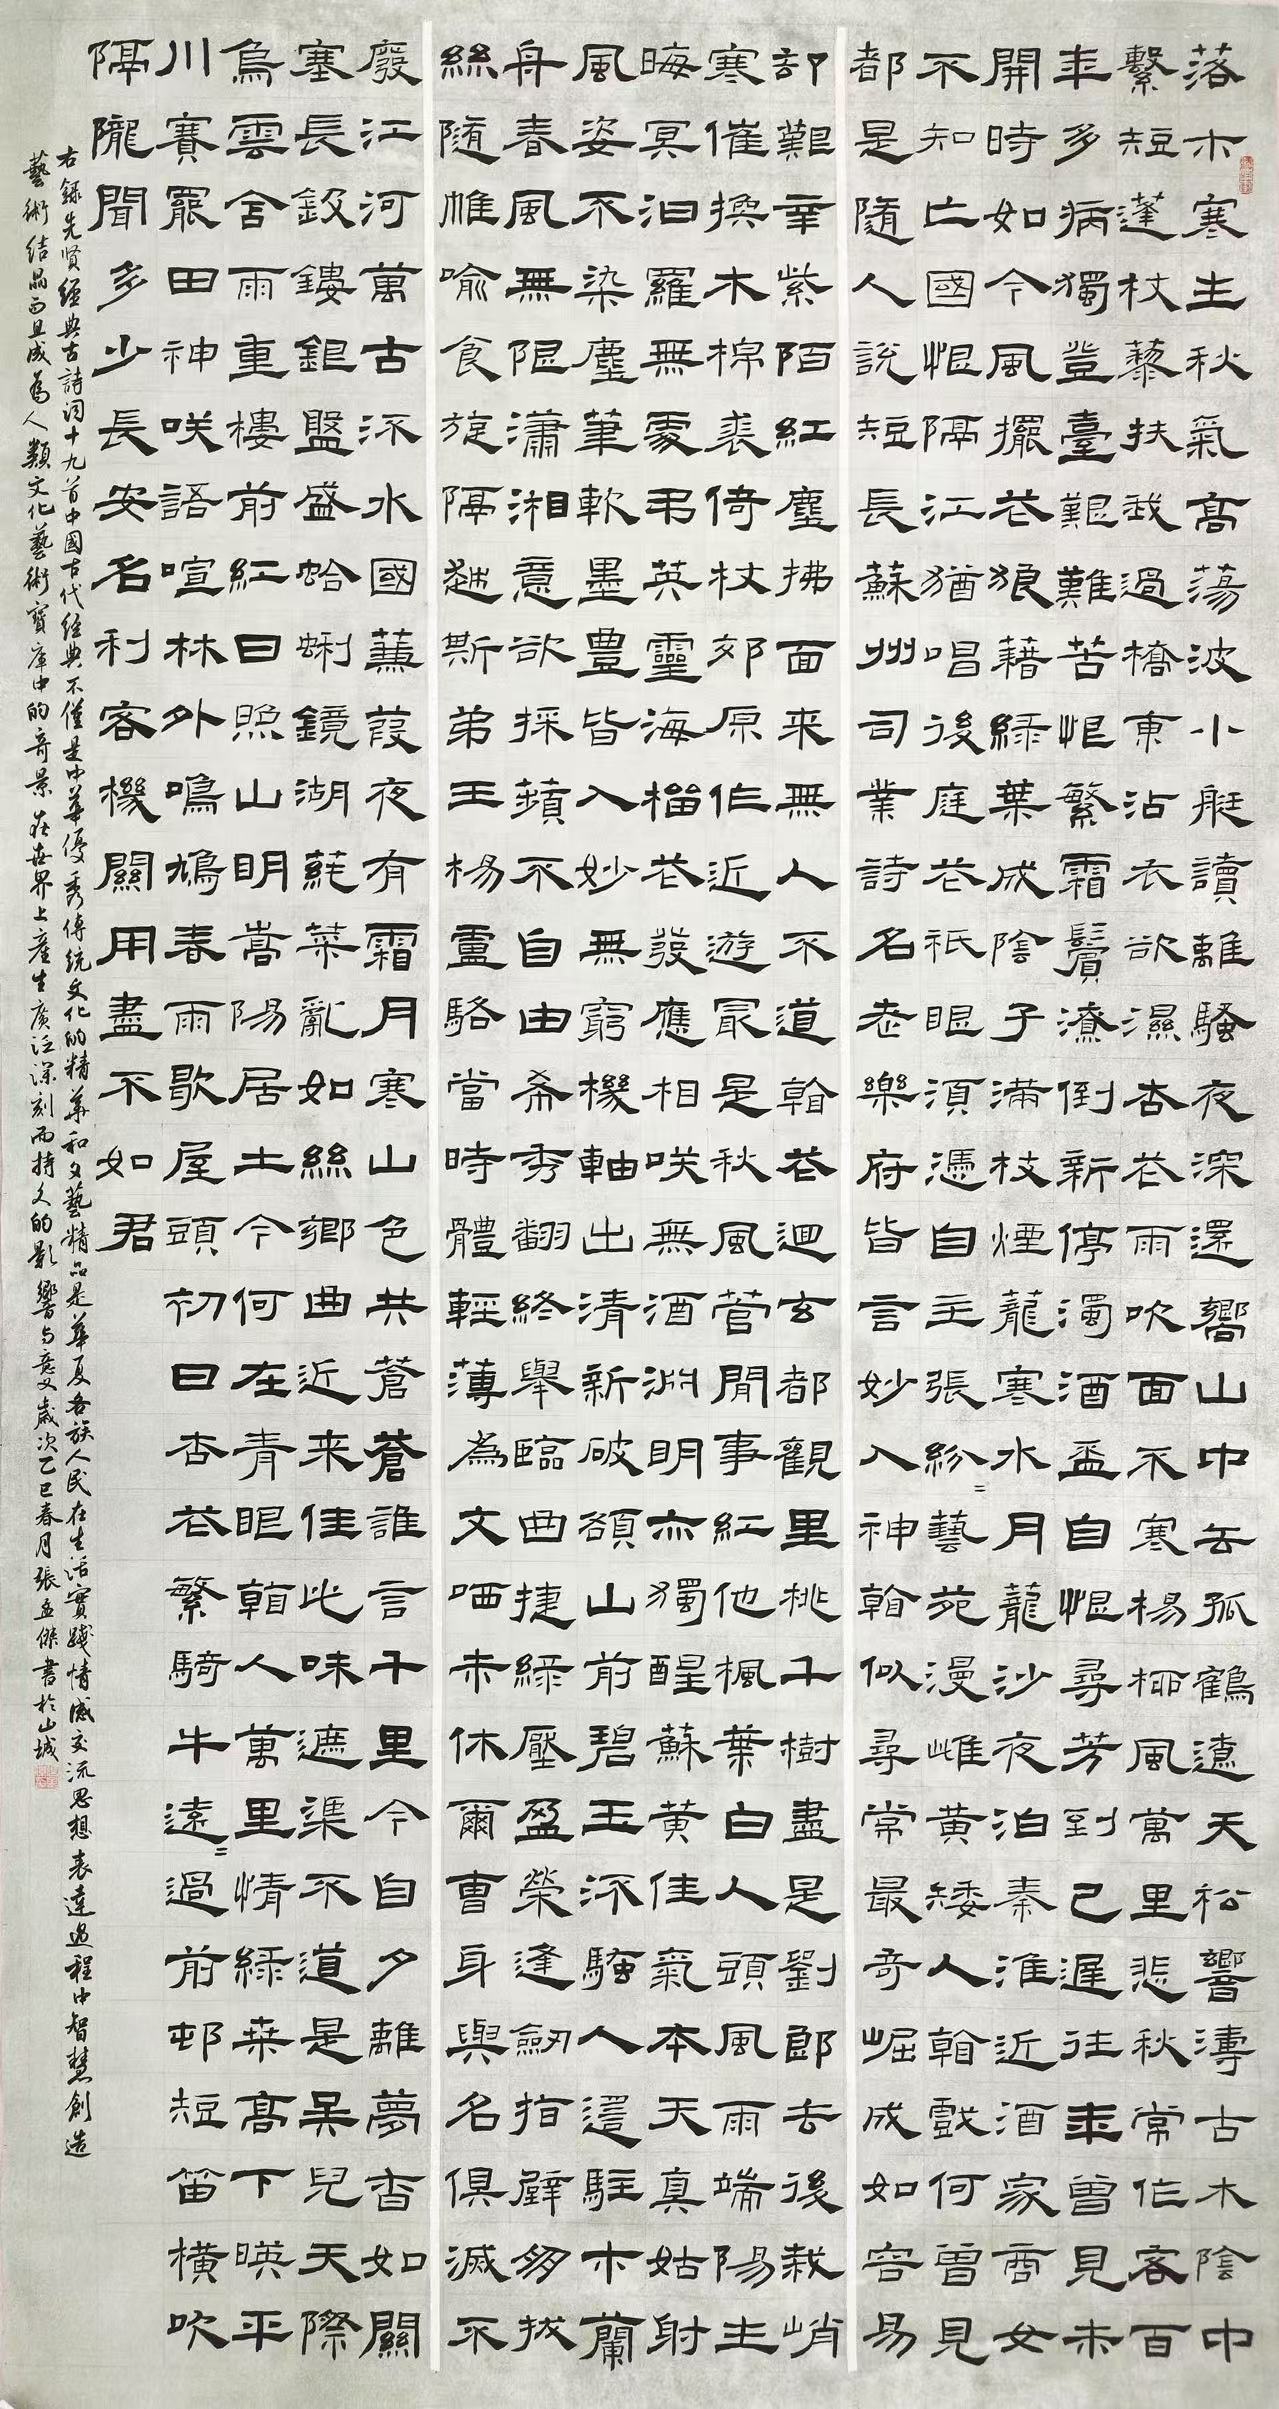 落木寒生秋氣高蕩波小艇讀離騷夜深還響山中去孤鶴遼天松響濤古木陰中
繫短蓬杖藜扶我過橋東沾衣欲濕杏花雨吹面不寒楊柳風萬里悲秋常作客百
年多病獨登臺艱難苦恨繁霜鬢潦倒新停濁酒盃自恨尋芳到已遲往年曾見未
開時如今風擺花狼藉綠葉成陰子滿枝煙籠寒水月籠沙夜泊秦淮近酒家商女
不知亡國恨隔江猶唱後庭花祇眼須憑自主張紛=藝苑漫雌黃矮人看戲何曾見
都是隨人說短長蘇州司業詩名老樂府皆言妙入神看似尋常最奇崛成如容易
却艱辛紫陌紅塵拂面来無人不道看花迴玄都觀里桃千樹盡是劉郎去後栽峭
寒催換木棉裘倚杖郊原作近遊最是秋風管閒事紅他楓葉白人頭風雨端陽生
晦冥汨羅無處弔英靈海榴花發應相咲無酒淵明亦獨醒蘇黃佳氣本天真姑射
風姿不染塵筆軟墨豐皆入妙無窮機軸出清新破額山前碧玉流騷人遙駐木蘭
舟春風無限瀟湘意欲採蘋不自由希秀翻終舉臨曲捷綠壓盈榮逢劒指壁多拔
絲随帷喻食旋隔越斯弟王楊盧駱當時體輕薄為文哂未休爾曹身與名俱滅不
廢江河萬古流水國蒹葭夜有霜月寒山色共蒼蒼誰言千里今自夕離夢杳如關
塞長釵鏤鉅盤盛蛤蜊鏡湖蓴菜亂如絲鄉曲近来佳此味遮渠不道是吴兒天際
烏雲含雨重樓前紅日照山明嵩陽居士今何在青眼看人萬里情綠桑高下暎平
川賽罷田神咲語喧林外鳴鳩春雨歇屋頭初日杏花繁騎牛遠=過前邨短笛橫吹
隔隴聞多少長安名利客機關用盡不如君
右錄先贤經典古詩詞十九首中國古代经典不僅是中華優秀傳統文化的精華和文藝精品是華夏各族人民在生活實踐情感交流思想表達過程中智慧創造
藝術结晶而且成為人類文化藝術寶庫中的奇景在世界上產生廣泛深刻而持久的影響与意义歲次乙巳春月張孟傑書於山城